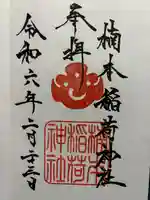 楠本稲荷神社
奉拝
楠本稲荷神社
令和六年二月二十三日